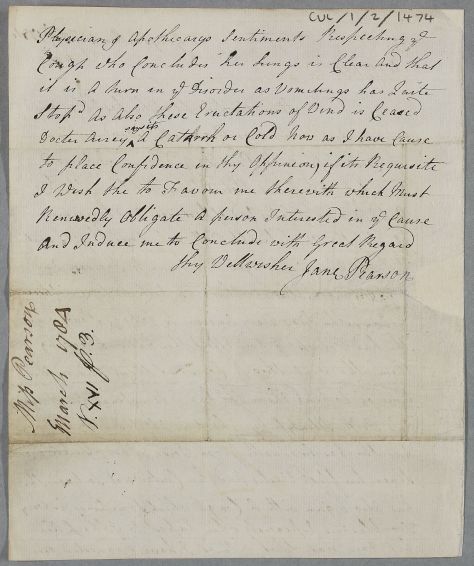 CUL/1/2/1474
Physician & Apothecarys Sentiments Respecting ye
Cough who Concludes her Lungs is Clear And that
it is A turn in ye Disorder as Vomitings has Quite
Stop'd as Also these Eructations of Wind is Ceased
Doctor Airey says its A Catarrh or Cold Now as I have Cause
to place Confidence in thy Oppineon, if its Requisite
I Wish the to Favour me therewith which Must
Renewedly Obligate A person Interested in ye Cause
And Induce me to Conclude with Great Regard
thy Wellwisher Jane Pearson
Miss Pearson
March 1784
V. XVI p. 3.